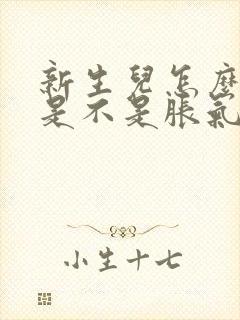 新生兒怎麼
是不是脹氣
小生十七